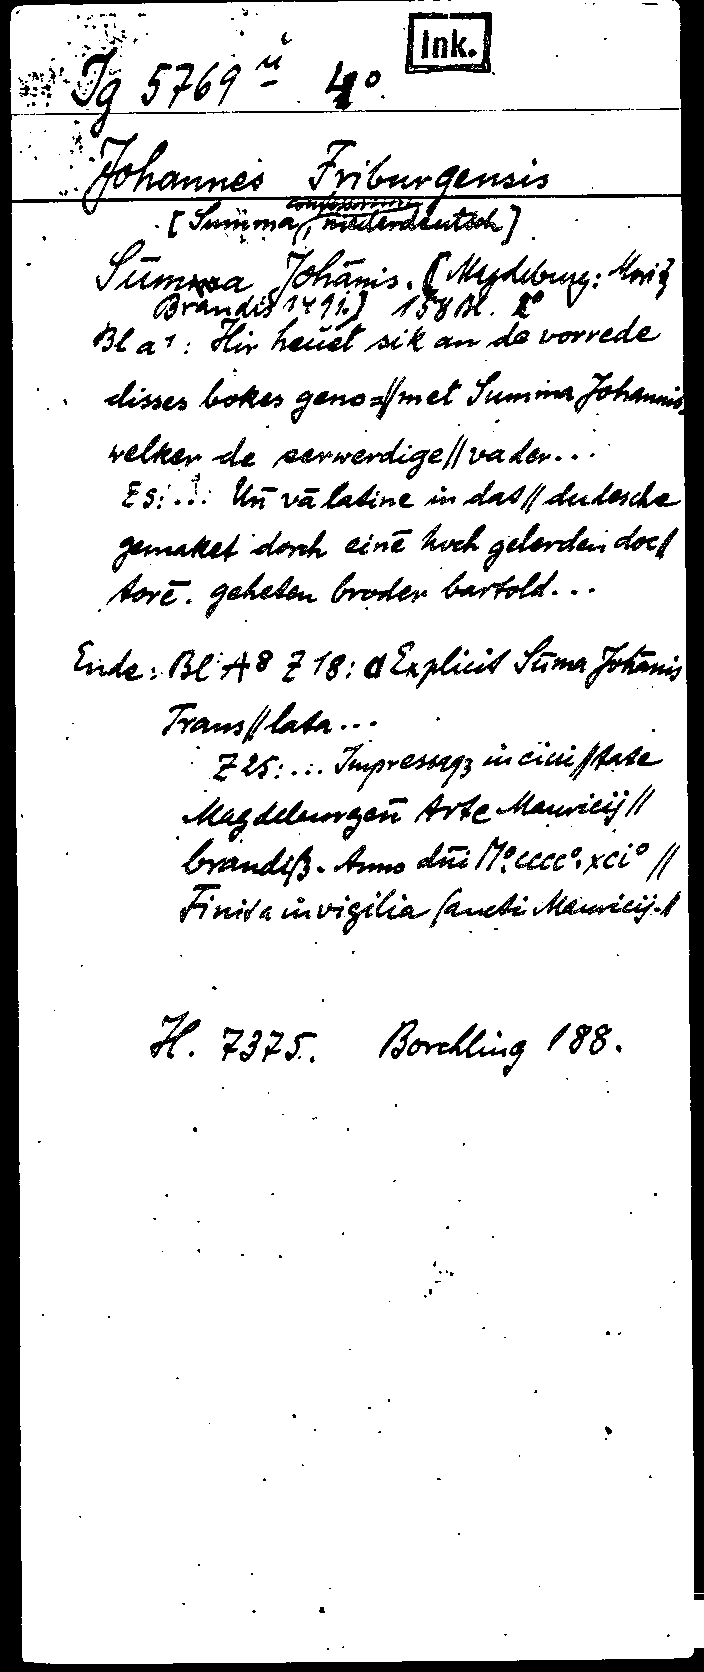 Ink.
Ig 5769 ü 4°
Johannes Friburgensis
[Summa, niederdeutsch]
Sum̄a Johānis. [Magdeburg: Moritz
Brandis 1491.] 158 Bl.
Bl a¹: Hir heuet sik an de vorrede
disses bokes geno=//met Summa Johannis
welker de eerwerdige // vader...
Z5: ... Un̄ vā latine in das // dudesche
gemaket dorch einē hoch gelerden doc//
torē. geheten broder bartold...
Ende: Bl A⁸ Z 18: Explicit Sūma Johānis
Trans//lata...
Z 25: ... Impressaqz in ciui//tate
Magdeburgen̄ Arte Mauricij //
brandiß. Anno dn̄i M°.cccc°.xci° //
Finita in vigilia sancti Mauricij. //
H. 7375. Borchling 188.